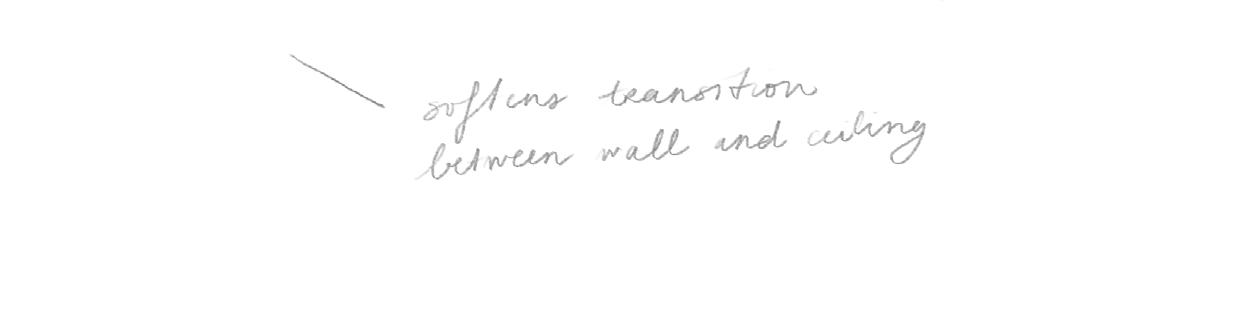 softens transition
between wall and ceiling